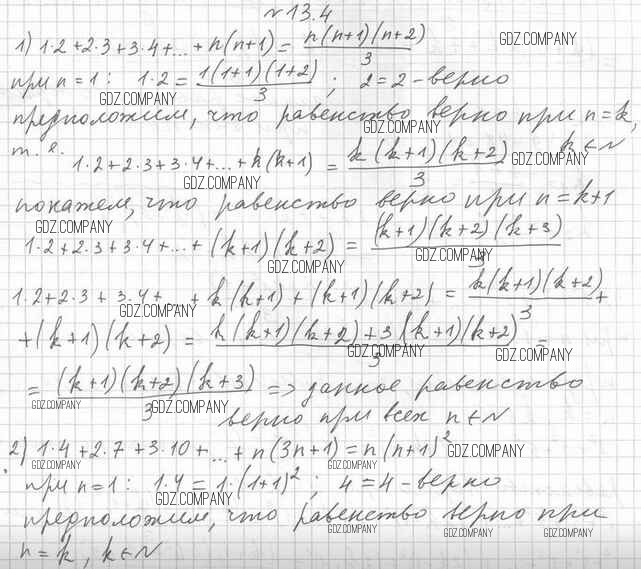 №13.4
1) 1·2+2·3+3·4+...+n(n+1)= n(n+1)(n+2)/3
GDZ.COMPANY
при n=1: 1·2= 1(1+1)(1+2)/3 ; 2=2 - верно
GDZ.COMPANY
предположим, что равенство верно при n=k,
GDZ.COMPANY
т.е. k∈N
1·2+2·3+3·4+...+k(k+1) = k(k+1)(k+2)/3
GDZ.COMPANY
GDZ.COMPANY
покажем, что равенство верно при n=k+1
GDZ.COMPANY
1·2+2·3+3·4+...+(k+1)(k+2) = (k+1)(k+2)(k+3)/3
GDZ.COMPANY
GDZ.COMPANY
1·2+2·3+3·4+...+k(k+1)+(k+1)(k+2) = k(k+1)(k+2)/3 +
GDZ.COMPANY
+(k+1)(k+2) = k(k+1)(k+2)+3(k+1)(k+2)/3 =
GDZ.COMPANY
= (k+1)(k+2)(k+3)/3 => данное равенство
GDZ.COMPANY
GDZ.COMPANY
верно при всех n∈N
2) 1·4+2·7+3·10+...+n(3n+1)=n(n+1)²
GDZ.COMPANY
GDZ.COMPANY
GDZ.COMPANY
при n=1: 1·4=1·(1+1)²; 4=4 - верно
GDZ.COMPANY
предположим, что равенство верно при
GDZ.COMPANY
GDZ.COMPANY
GDZ.COMPANY
n=k, k∈N